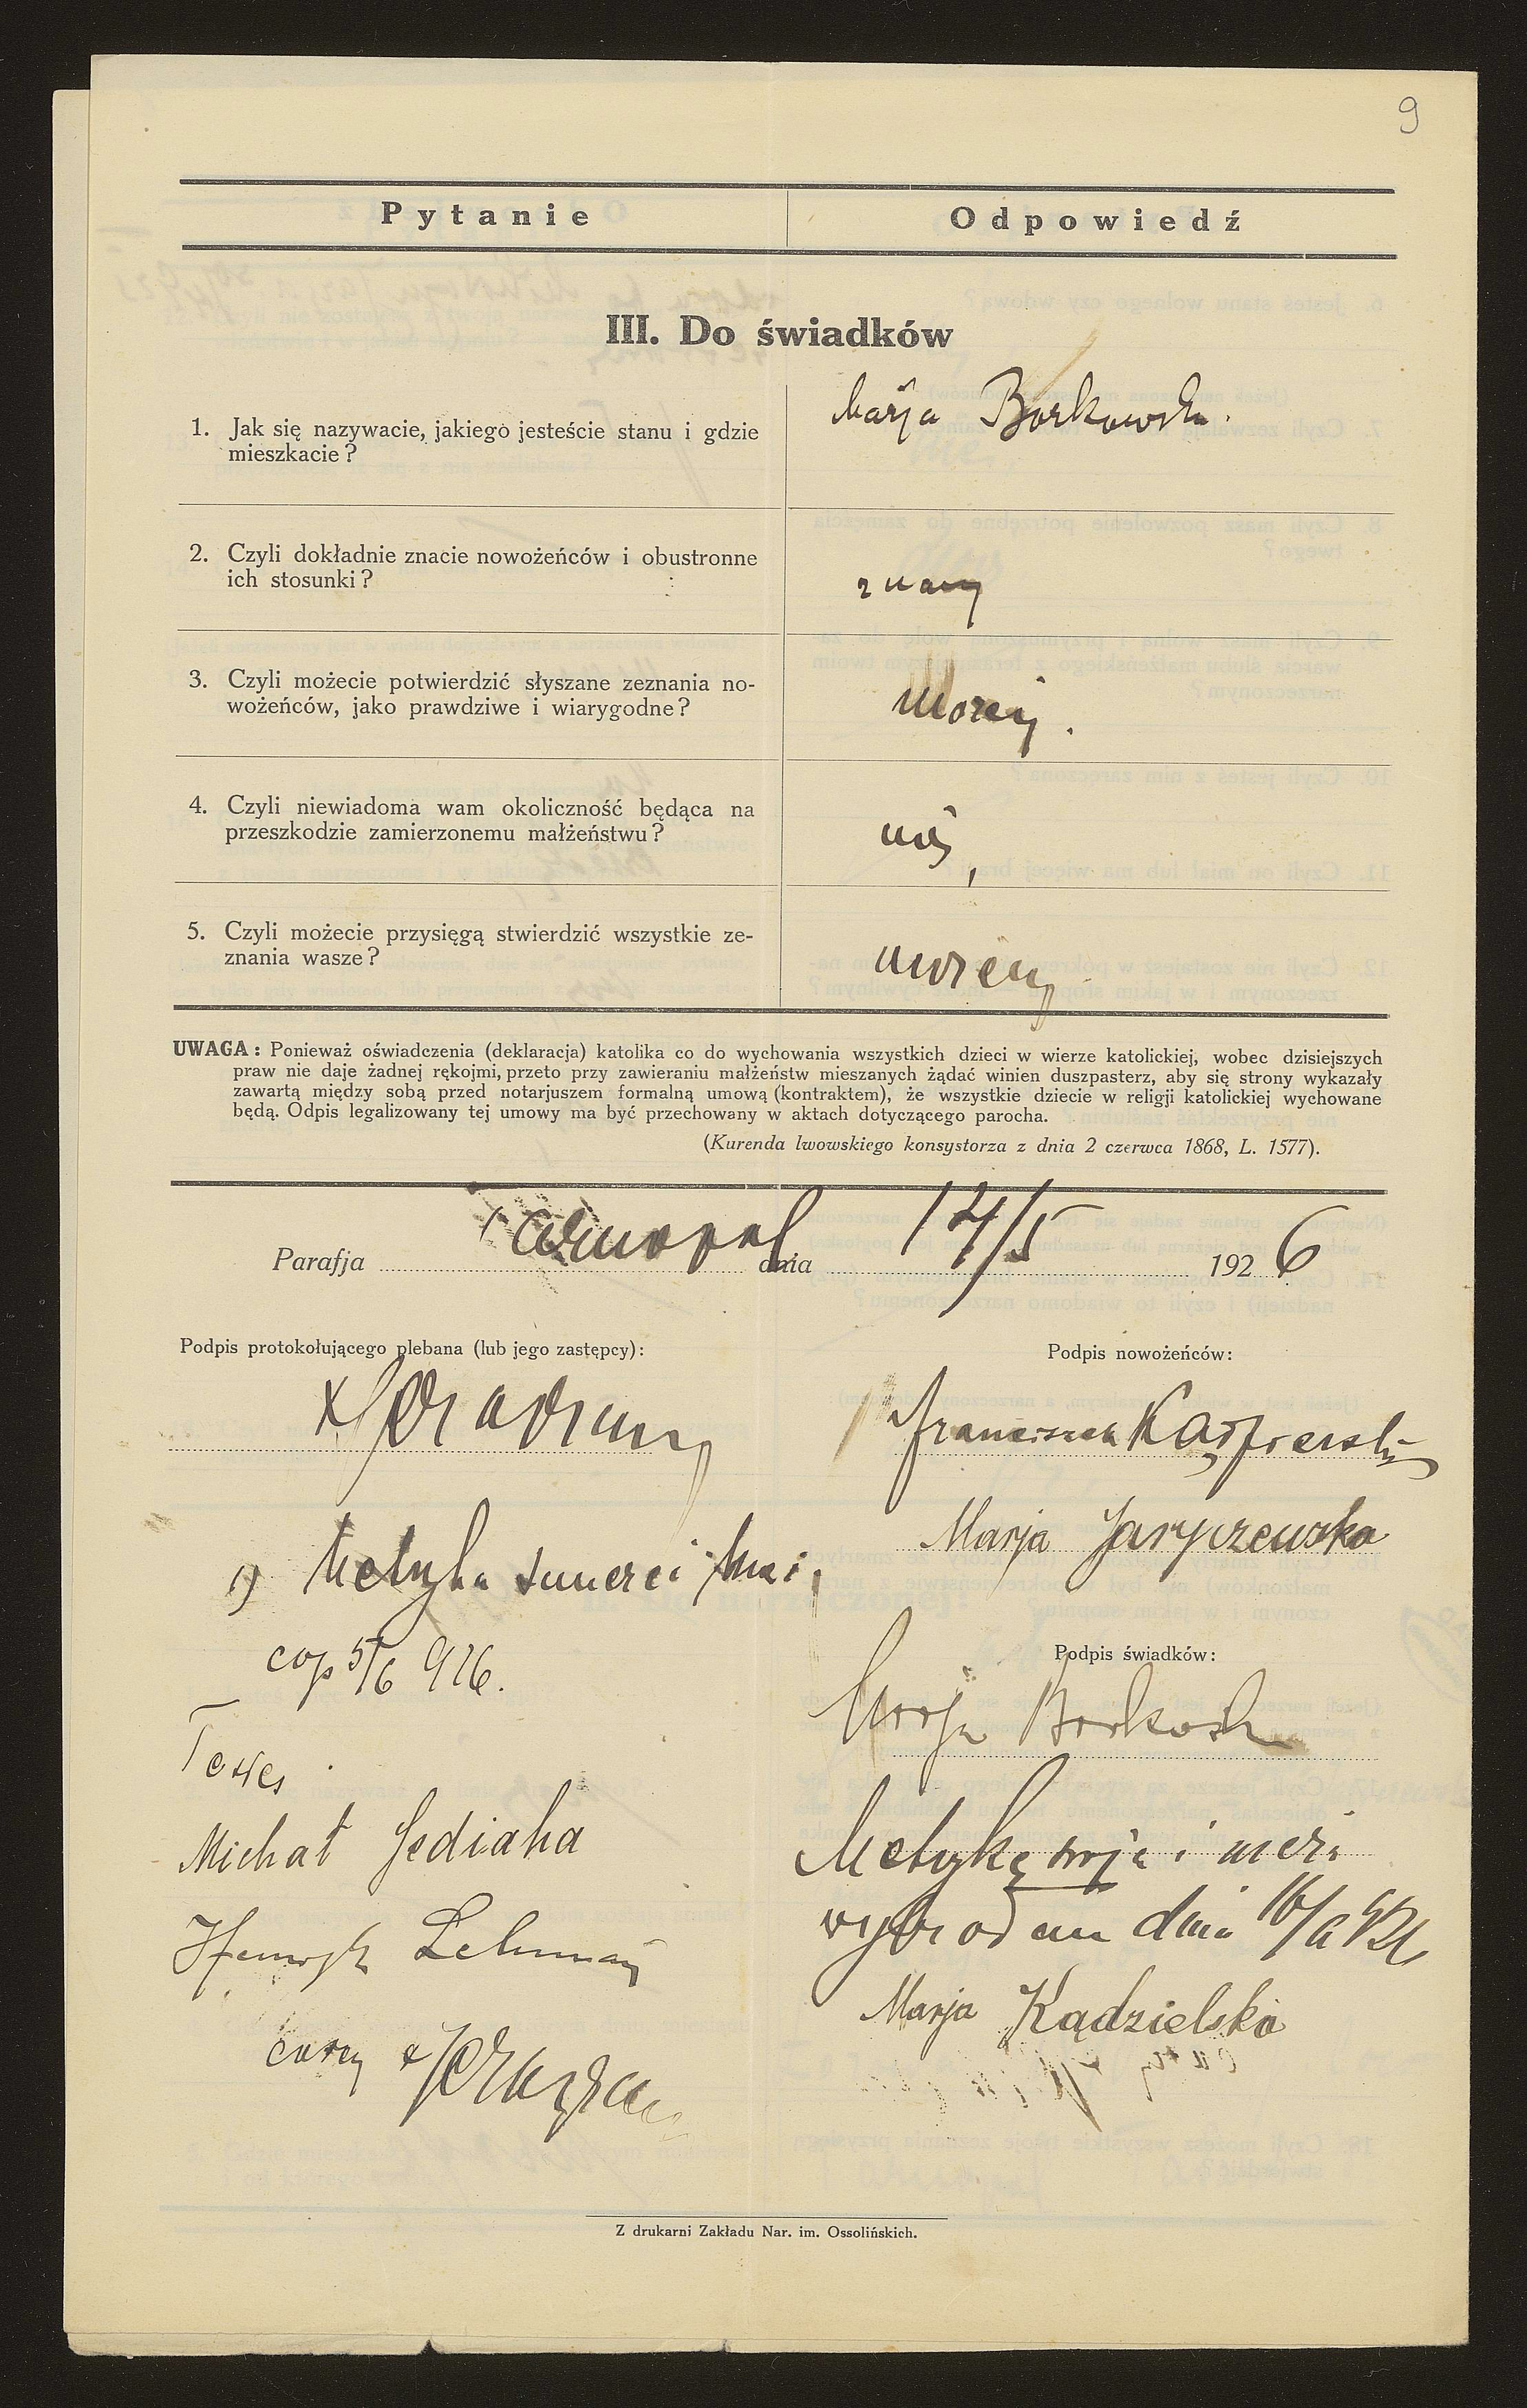 9
Pytanie
Odpowiedź
III. Do świadków
1. Jak się nazywacie, jakiego jesteście stanu i gdzie
mieszkacie?
Marja Borkowska.
2. Czyli dokładnie znacie nowożeńców i obustronne
ich stosunki?
znamy
3. Czyli możecie potwierdzić słyszane zeznania no-
wożeńców, jako prawdziwe i wiarygodne?
możemy.
4. Czyli niewiadoma wam okoliczność będąca na
przeszkodzie zamierzonemu małżeństwu?
nie,
5. Czyli możecie przysięgą stwierdzić wszystkie ze-
znania wasze?
możemy
UWAGA: Ponieważ oświadczenia (deklaracja) katolika co do wychowania wszystkich dzieci w wierze katolickiej, wobec dzisiejszych
praw nie daje żadnej rękojmi, przeto przy zawieraniu małżeństw mieszanych żądać winien duszpasterz, aby się strony wykazały
zawartą między sobą przed notarjuszem formalną umową (kontraktem), że wszystkie dziecie w religji katolickiej wychowane
będą. Odpis legalizowany tej umowy ma być przechowany w aktach dotyczącego parocha.
(Kurenda lwowskiego konsystorza z dnia 2 czerwca 1868, L. 1577).
Parafja Tarnopol dnia 14/5 1926
Podpis protokołującego plebana (lub jego zastępcy):
Podpis nowożeńców:
Franciszek
Marja Jaryczewska
1) Metryka śmierci
cop 5/6 926.
Podpis świadków:
Marja Borkowska
Testes
Michał Jediaha
Henryk Lehman
Metrykę moją i męża
dnia 16/
Marja Kądzielska
Z drukarni Zakładu Nar. im. Ossolińskich.